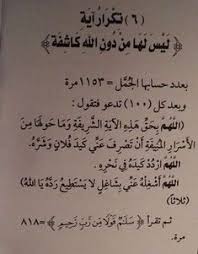 (٦) تكرار آية
﴿ لَيْسَ لَهَا مِنْ دُونِ اللَّهِ كَاشِفَةٌ ﴾
بعدد حسابها الجُمَّل = ١١٥٣ مرة
وبعد كل (١٠٠) تدعو فتقول :
(اللَّهُمَّ بِحَقِّ هَذِهِ الآيَةِ الشَّرِيفَةِ وَمَا حَوَتْهَا مِنَ
الأَسْرَارِ الْمُنِيفَةِ أَنْ تَصْرِفَ عَنِّي كَيْدَ فُلَانٍ وَشَرَّهُ.
اللَّهُمَّ ارْدُدْ كَيْدَهُ فِي نَحْرِهِ .
اللَّهُمَّ أَشْغِلْهُ عَنِّي بِشَاغِلٍ لَا يَسْتَطِيعُ رَدَّهُ يَا اللَّهُ)
(ثلاثاً)
ثم تقرأ ﴿ سَلَامٌ قَوْلًا مِنْ رَبٍّ رَحِيمٍ ﴾ = ٨١٨
مرة.